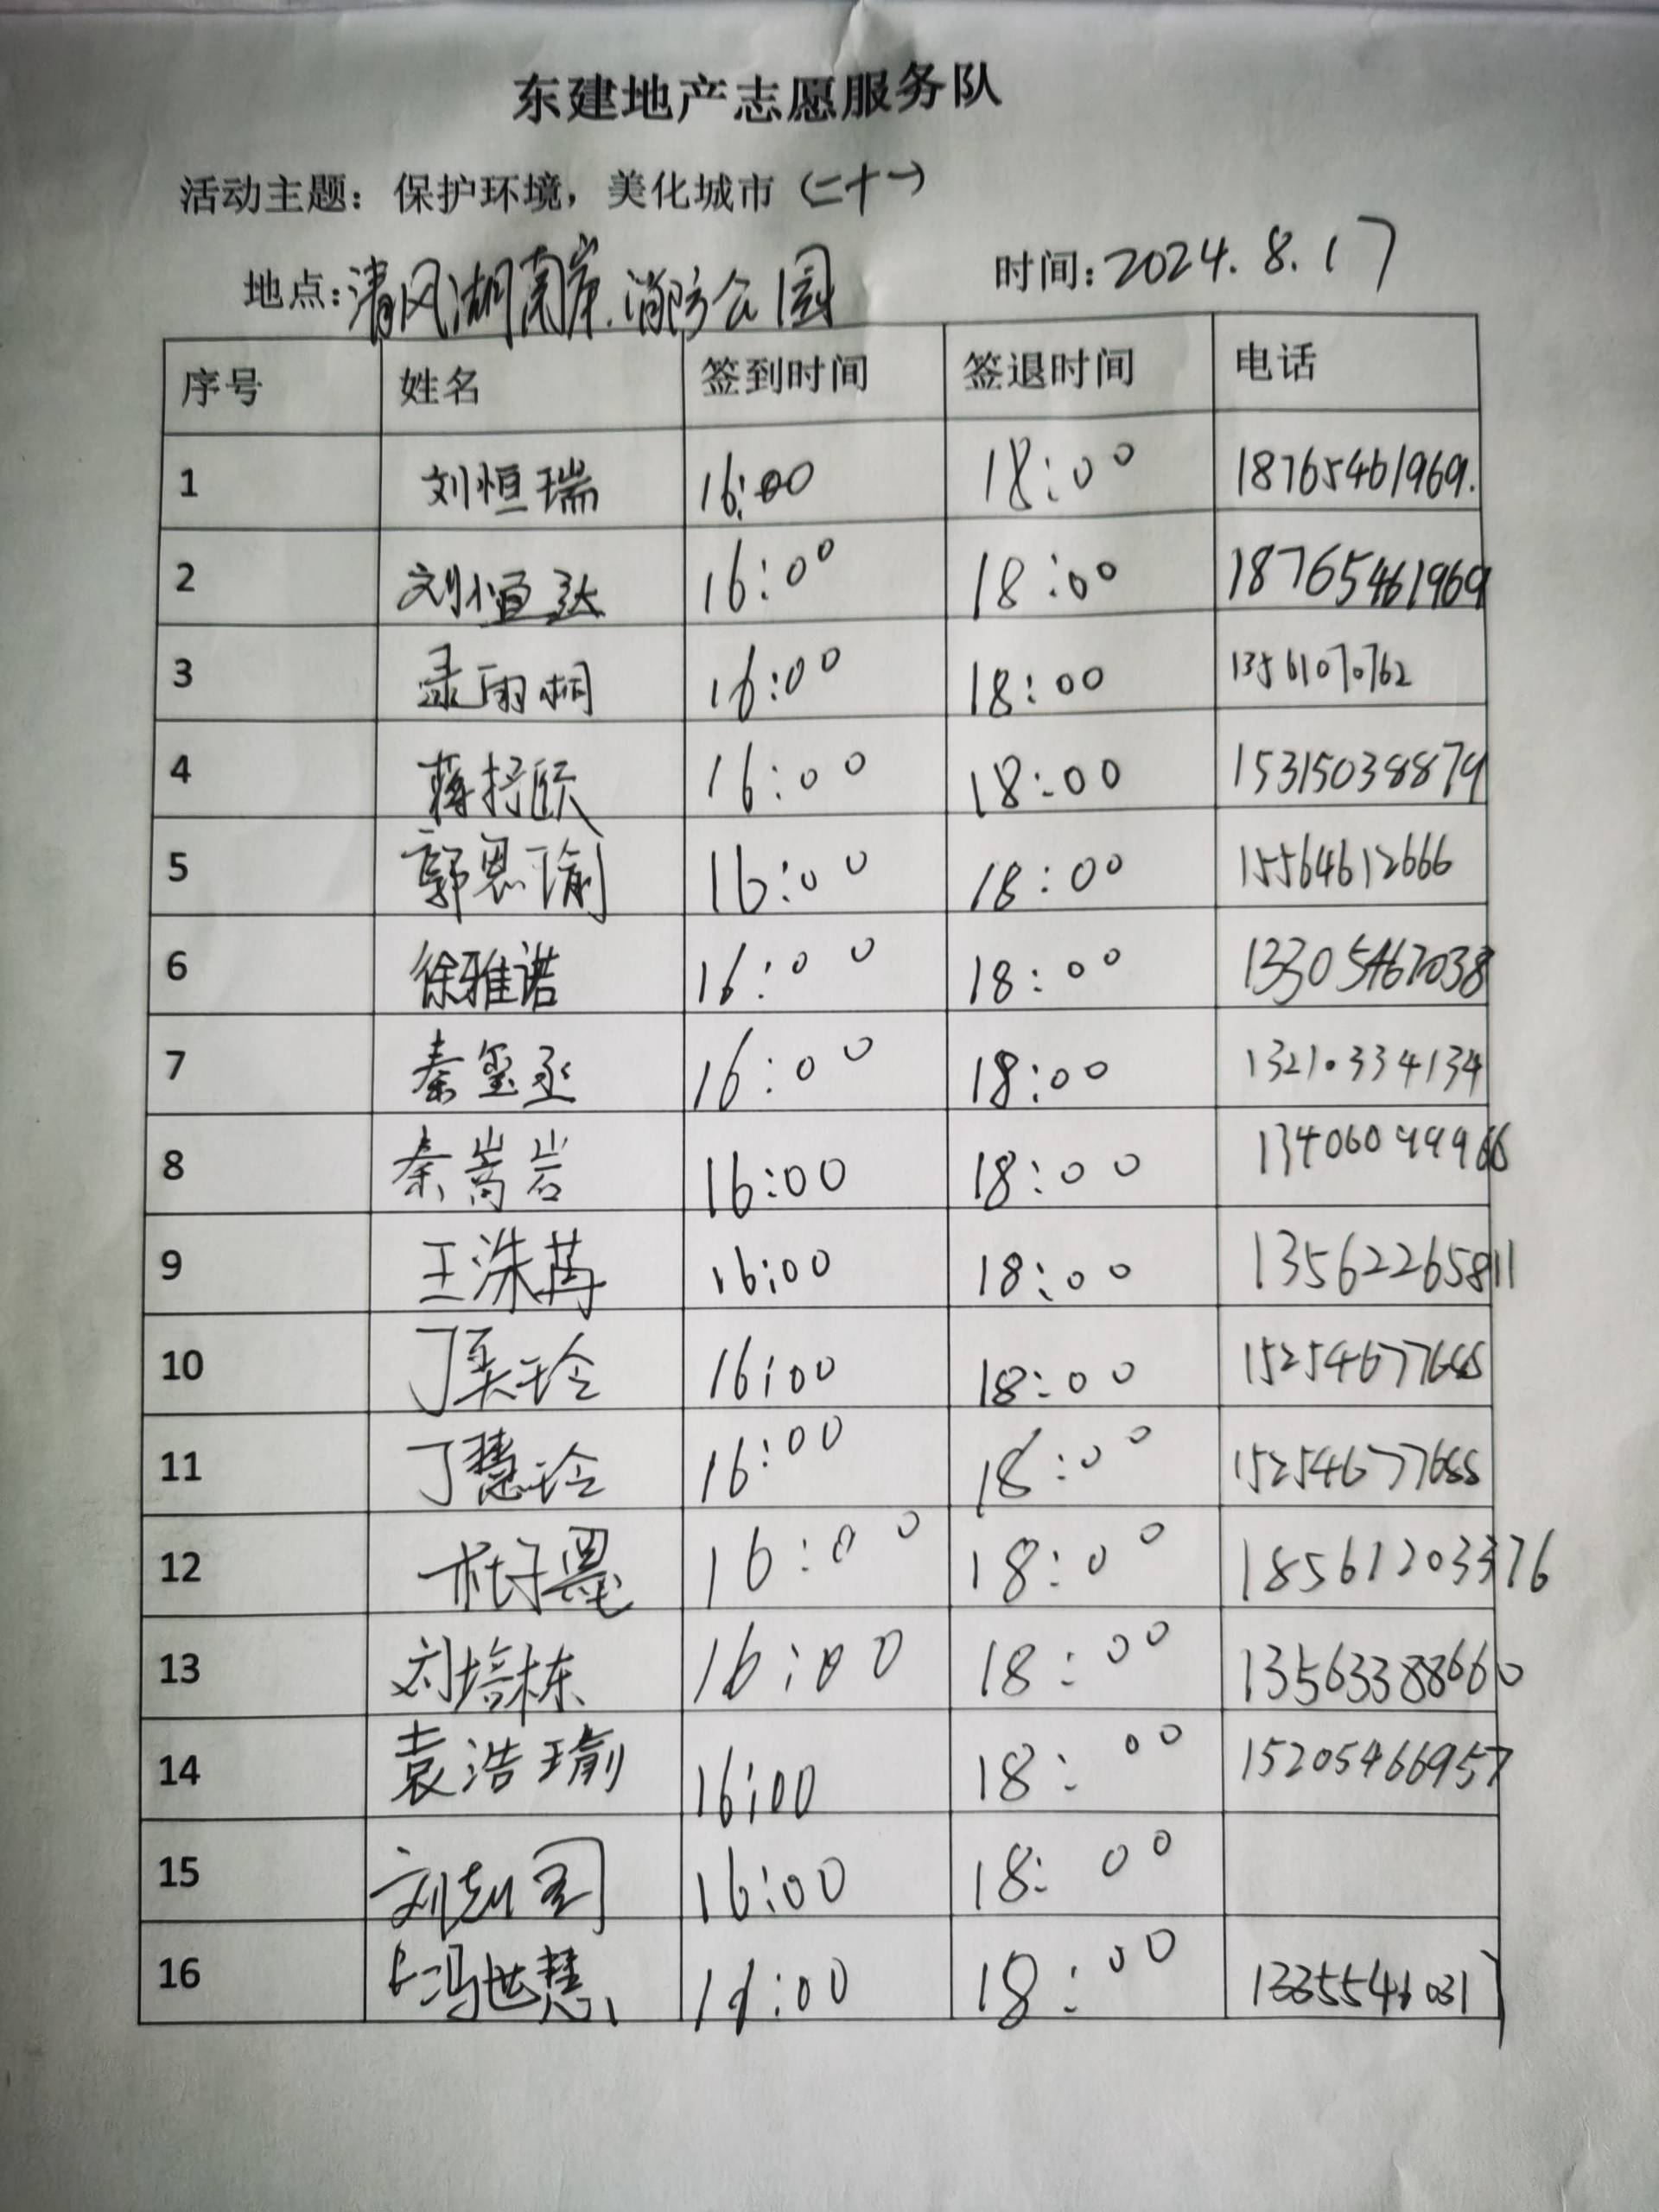 东建地产志愿服务队
活动主题：保护环境，美化城市（二十一）
地点：清风湖南岸.消防公园 时间：2024.8.17
序号 姓名 签到时间 签退时间 电话
1 刘恒瑞 16:00 18:00 18765461969.
2 刘恒达 16:00 18:00 18765461969
3 雨桐 16:00 18:00 13561070762
4 蒋抒颀 16:00 18:00 15315038879
5 郭恩瑜 16:00 18:00 15564612666
6 徐雅诺 16:00 18:00 13305467038
7 秦玺丞 16:00 18:00 13210334134
8 秦嵩岩 16:00 18:00
9 王洙苒 16:00 18:00 13562265811
10 丁美玲 16:00 18:00
11 丁慧玲 16:00 18:00
12 杜子墨 16:00 18:00 18561203376
13 刘培栋 16:00 18:00 13563388660
14 袁浩瑜 16:00 18:00 15205466957
15 刘 16:00 18:00
16 冯世慧 16:00 18:00